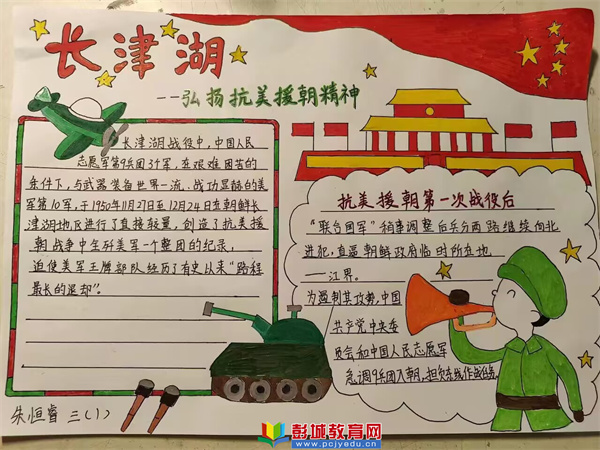 长津湖
——弘扬抗美援朝精神
长津湖战役中,中国人民
志愿军第9兵团3个军,在艰难困苦的
条件下,与武器装备世界一流、战功显赫的美
军第10军,于1950年11月27日至12月24日在朝鲜长
津湖地区进行了直接较量,创造了抗美援
朝战争中全歼美军一个整团的纪录,
迫使美军王牌部队经历了有史以来“路程
最长的退却”。
抗美援朝第一次战役后
“联合国军”稍事调整后兵分两路继续向北
进犯,直逼朝鲜政府临时所在地
——江界。
为遏制其攻势,中国
共产党中央委
员会和中国人民志愿军
急调9兵团入朝,担负东线作战任务
朱恒睿 三(1)
彭城教育网
www.pcjyedu.com